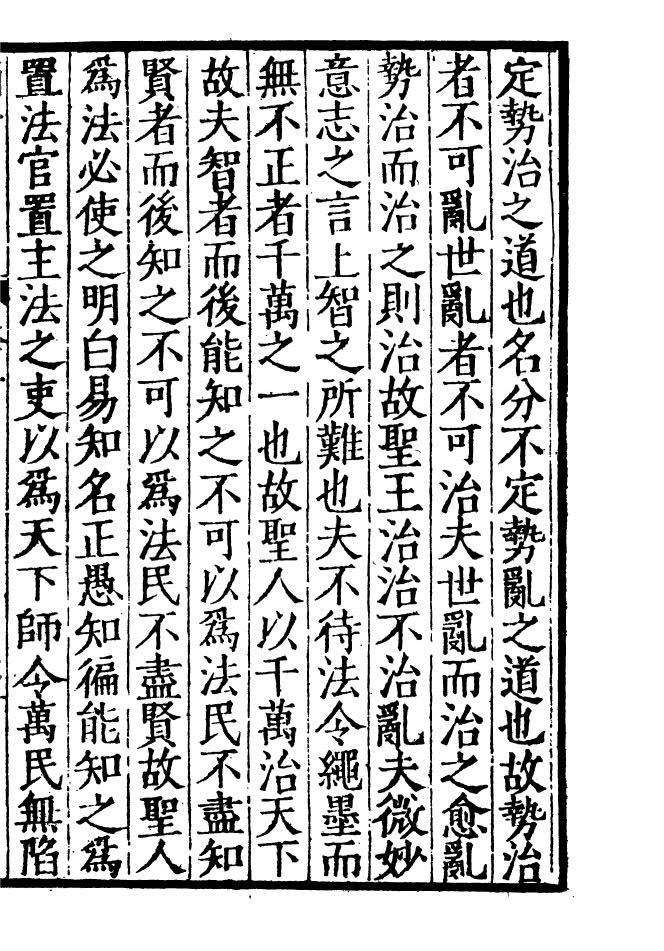 定勢治之道也名分不定勢亂之道也故勢治
者不可亂世亂者不可治夫世亂而治之愈亂
勢治而治之則治故聖王治治不治亂夫微妙
意志之言上智之所難也夫不待法令繩墨而
無不正者千萬之一也故聖人以千萬治天下
故夫智者而後能知之不可以爲法民不盡知
賢者而後知之不可以爲法民不盡賢故聖人
爲法必使之明白易知名正愚知徧能知之爲
置法官置主法之吏以爲天下師令萬民無陷